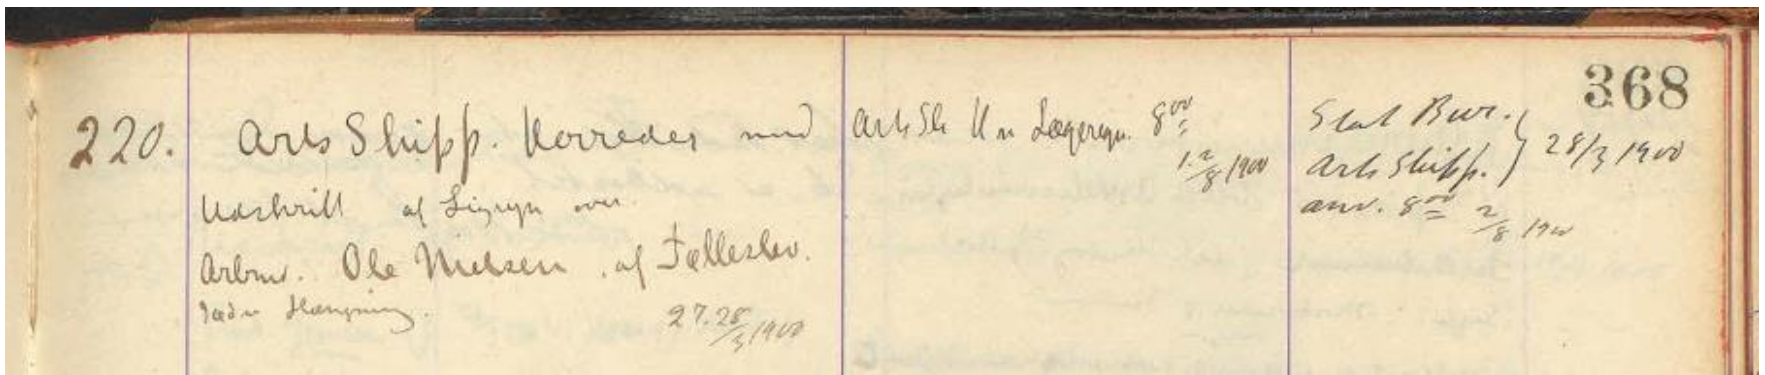 368
220. Arts Skipp. Herredes med
Udskrift af Ligsyn over
Arbmd. Ole Nielsen af Følleslev.
død v. Hængning.
27.28/3 1900
Arts Sk H 8 00
1 2/8 1900
Stat Bur.
Arts Skipp. } 28/3 1900
anv. 8 00 2/8 1900